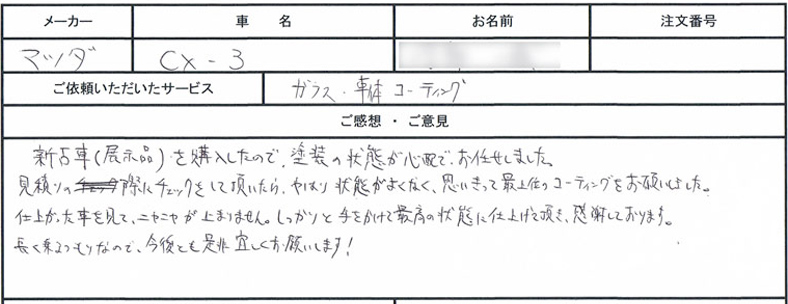 メーカー 車 名 お名前 注文番号
マツダ CX-3
ご依頼いただいたサービス ガラス・車体コーティング
ご感想 ・ ご意見
新古車(展示品)を購入したので、塗装の状態が心配で、お任せしました。
見積りの際にチェックをして頂いたら、やはり状態がよくなく、思いきって最上位のコーティングをお願いしました。
仕上がった車を見て、ニヤニヤが止まりません。しっかりと手をかけて最高の状態に仕上げて頂き、感謝しております。
長く乗るつもりなので、今後とも是非宜しくお願いします!